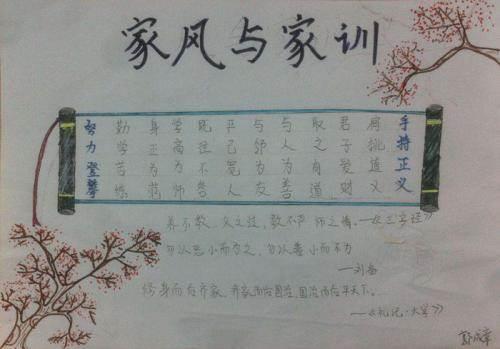 家风与家训
手持正义
肩挑道义
君子爱财
取之有道
与人为善
与邻为友
严己宽人
既往不咎
学高为师
身正为范
勤学苦练
努力登攀
养不教,父之过,教不严 师之惰。—《三字经》
勿以恶小而为之,勿以善小而不为
—刘备
修身而后齐家,齐家而后国治,国治而后平天下。
—《礼记·大学》